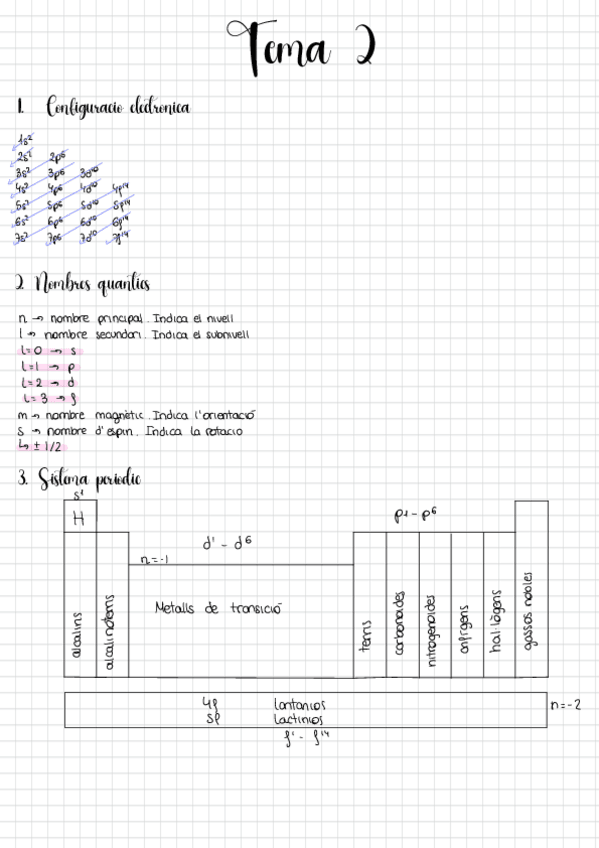 Tema 2
1. Configuracio electronica
1s²
2s² 2p⁶
3s² 3p⁶ 3d¹⁰
4s² 4p⁶ 4d¹⁰ 4f¹⁴
5s² 5p⁶ 5d¹⁰ 5f¹⁴
6s² 6p⁶ 6d¹⁰ 6f¹⁴
7s² 7p⁶ 7d¹⁰ 7f¹⁴
2. Nombres quantics
n → nombre principal. Indica el nivell
l → nombre secundari. Indica el subnivell
l=0 → s
l=1 → p
l=2 → d
l=3 → f
m → nombre magnètic. Indica l'orientació
s → nombre d'espin. Indica la rotacio
↳ ± 1/2
3. Sistema periodic
s¹
H
p¹ - p⁶
d¹ - d⁶
n=-1
Metalls de transició
alcalins
alcalinoterris
terris
carbonoides
nitrogenoides
anfígens
hal·lògens
gassos nobles
4f lantanids
5f lactinids
n=-2
f¹ - f¹⁴